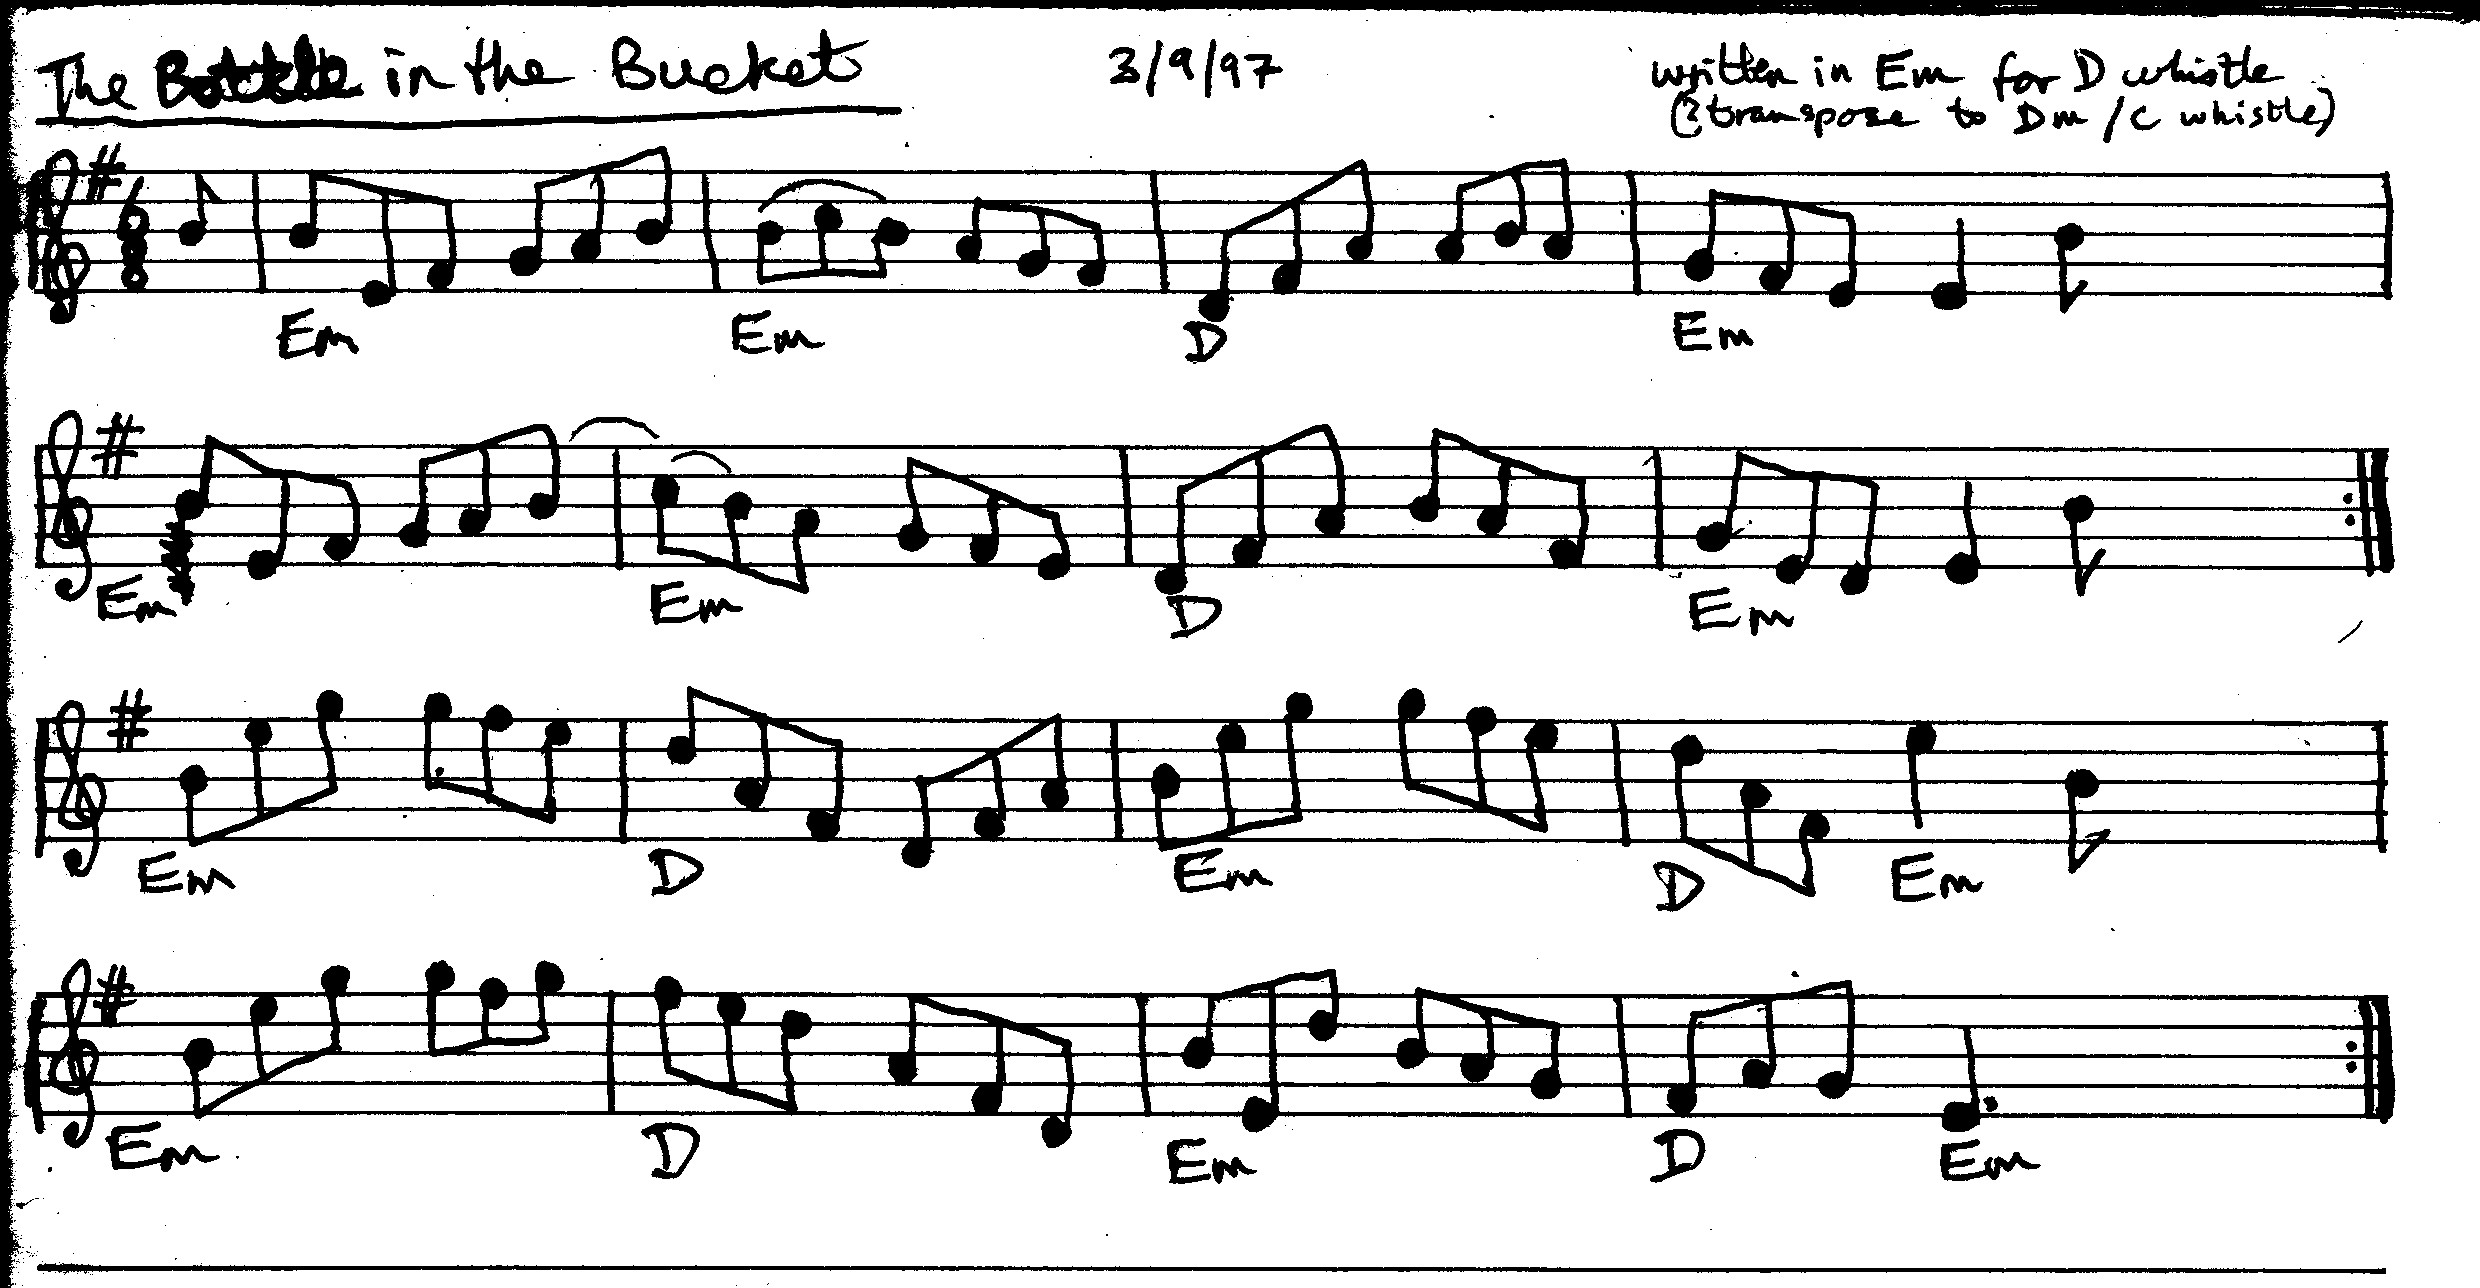 The Bottle in the Bucket 3/9/97 written in Em for D whistle
(?transpose to Dm / C whistle)
6
8
Em Em D Em
Em Em D Em
Em D Em D Em
Em D Em D Em